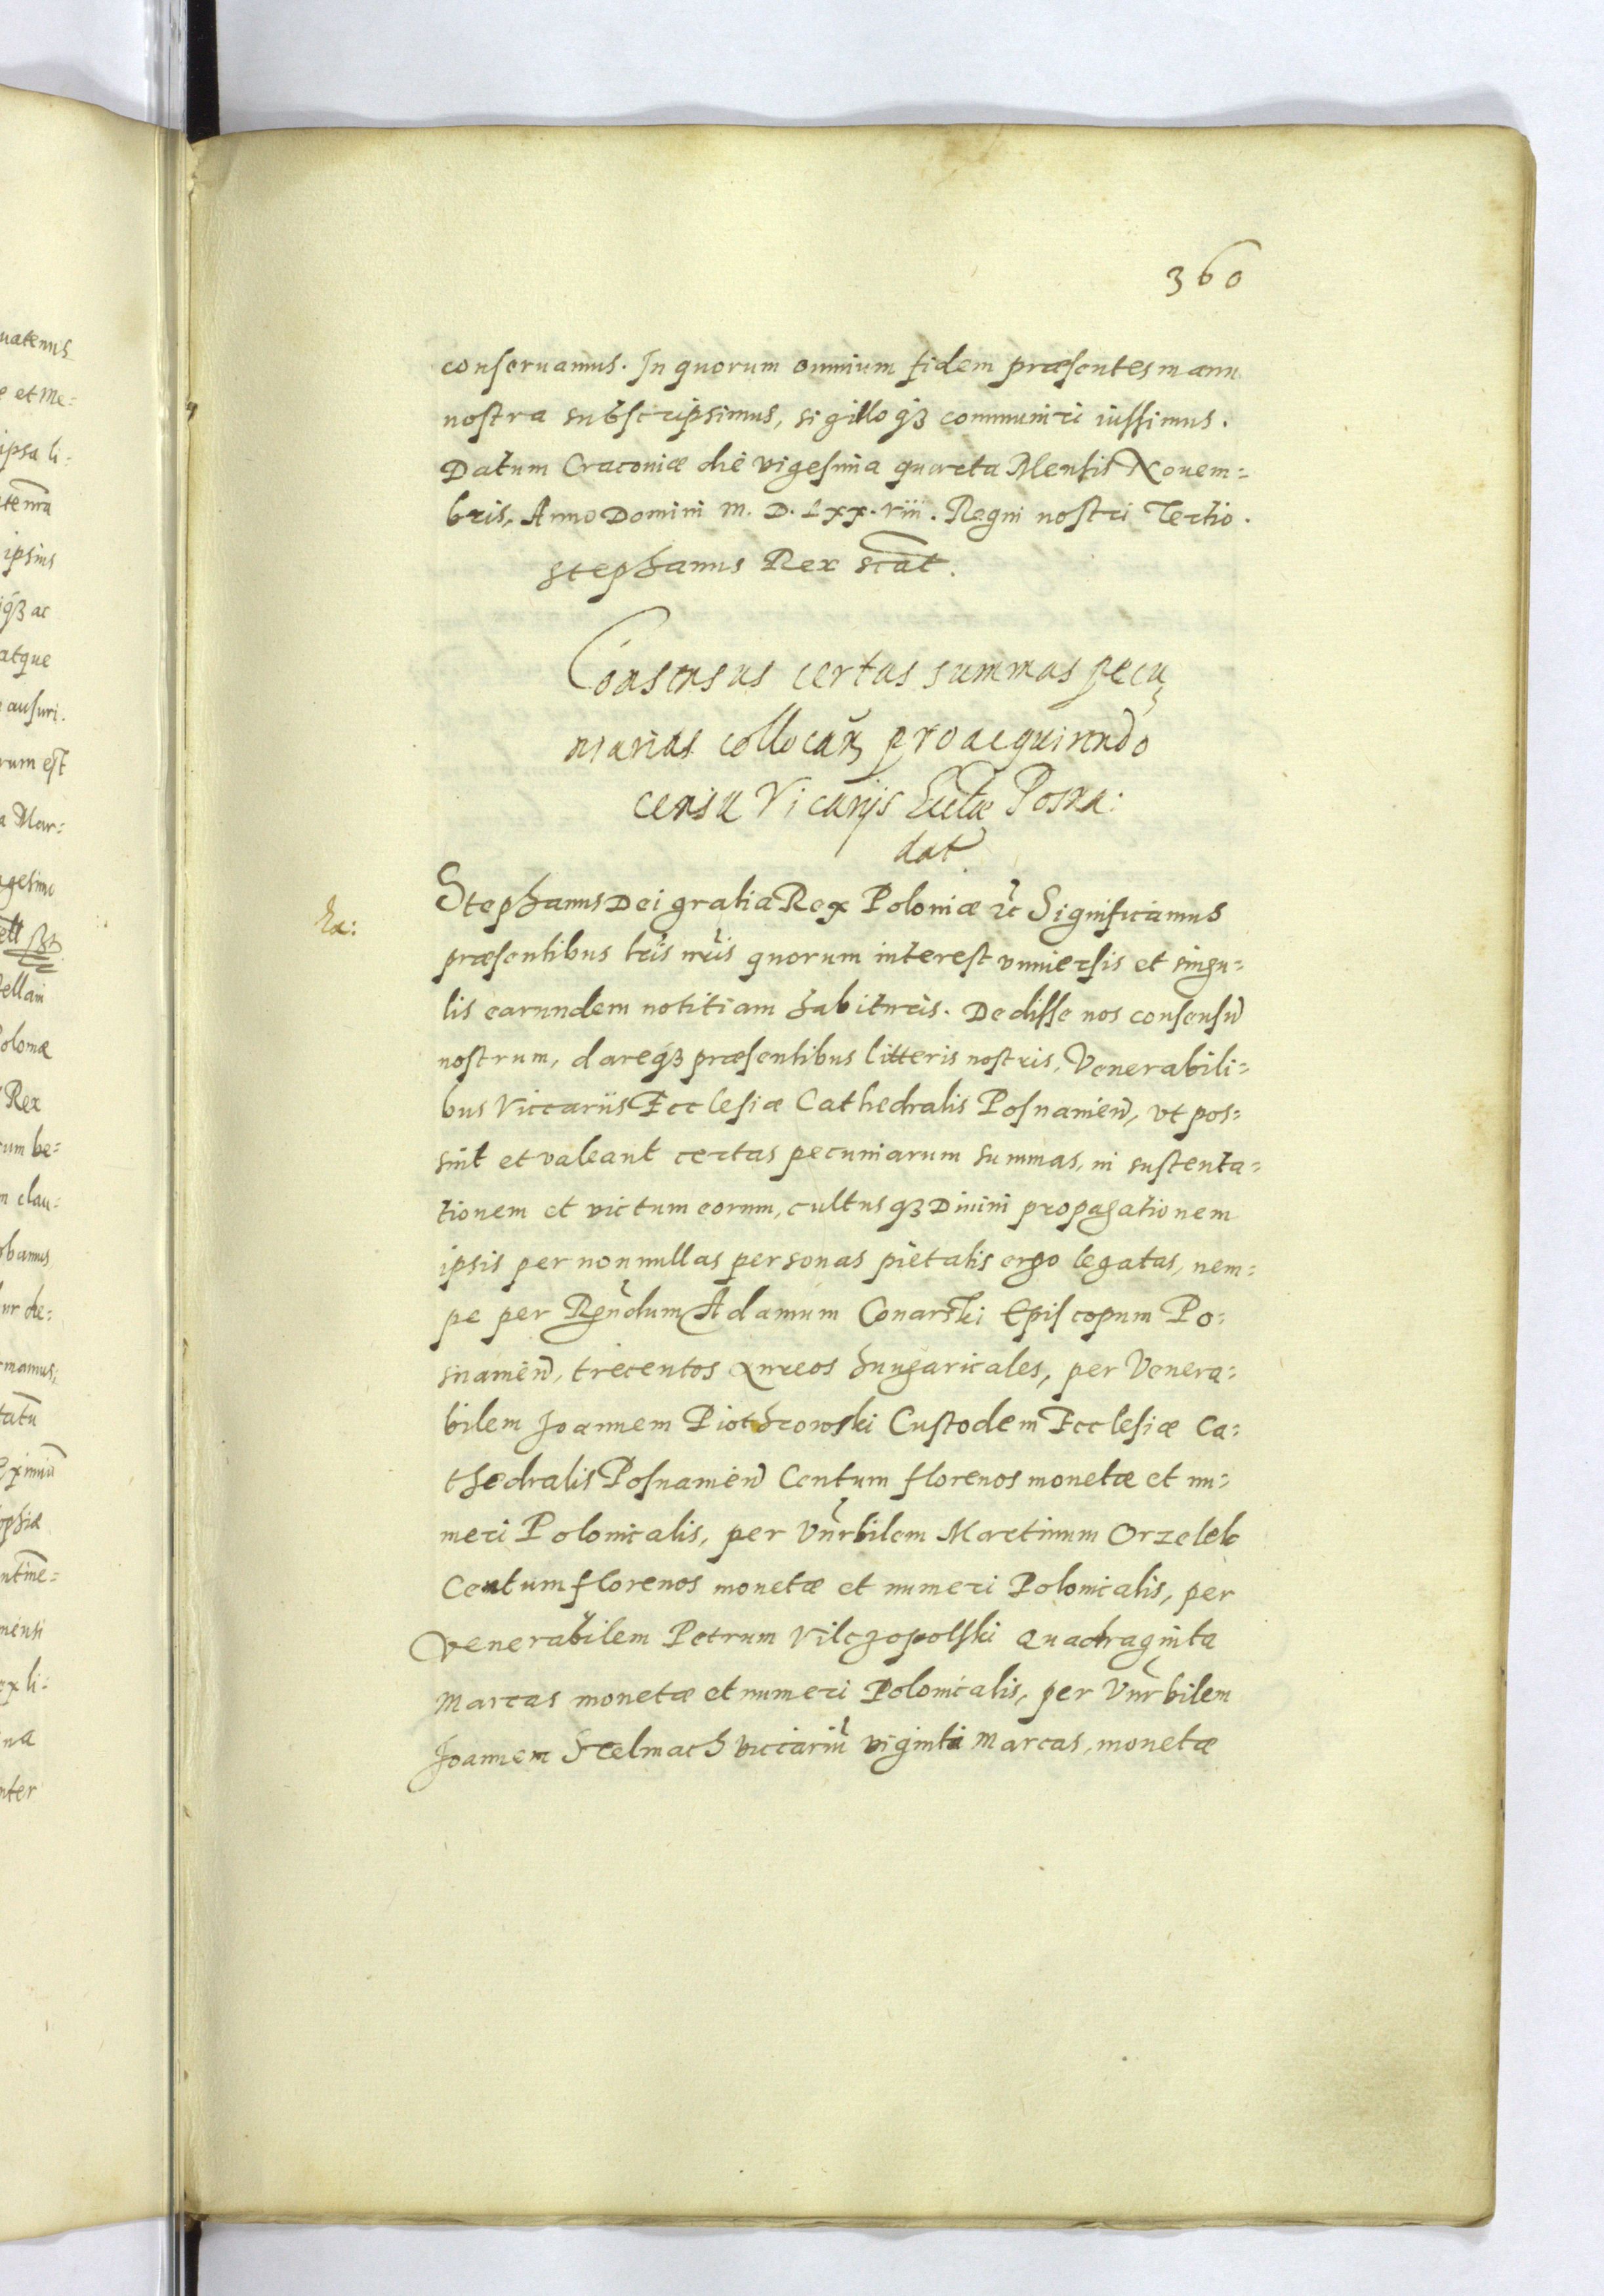 360
conseruamus. In quorum omnium fidem præsentes manu
nostra subscripsimus, sigilloq3 communiri iussimus.
Datum Cracoviæ die vigesima quarta Mensis Nouem=
bris, Anno Domini M. D. Lxx. viii. Regni nostri Tertio.
Stephanus Rex scat.
Consensus certas summas pecu
niarias collocan pro acquirendo
censu Vicarijs Eccłæ Posna:
dat
Stephanus Dei gratia Rex Poloniæ etc Significamus
præsentibus tris nris quorum interest vniuersis et singu=
lis earundem notitiam habituris. Dedisse nos consensu
nostrum, dareq3 præsentibus litteris nostris, Venerabili=
bus Viccariis Ecclesiæ Cathedralis Posnanien, vt pos=
sint et valeant certas pecuniarum summas, in sustenta=
tionem et victum eorum, cultusq3 Diuini propagationem
ipsis per nonnullas personas pietatis ergo legatas, nem=
pe per Rgndum Adamum Conarski Episcopum Po=
snanien, trecentos Aureos hungaricales, per Venera=
bilem Joannem Piothrowski Custodem Ecclesiæ Ca=
thedralis Posnanien Centum florenos monetæ et nu=
meri Polonicalis, per Vnrbilem Martinum Orzelek
Centum florenos monetæ et numeri Polonicalis, per
Venerabilem Petrum Vilczopolski Quadraginta
Marcas monetæ et numeri Polonicalis, per Vnrbilem
Joannem Stelmach viccariu viginti Marcas, monetæ